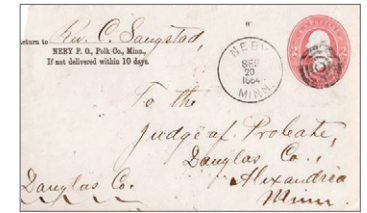 Return to Rev. C. Saugstad,
NEBY P. O., Polk Co., Minn.,
If not delivered within 10 days.
NEBY
SEP
20
1884
MINN.
To the
Judge of Probate,
Douglas Co.,
Douglas Co. Alexandria
Minn.